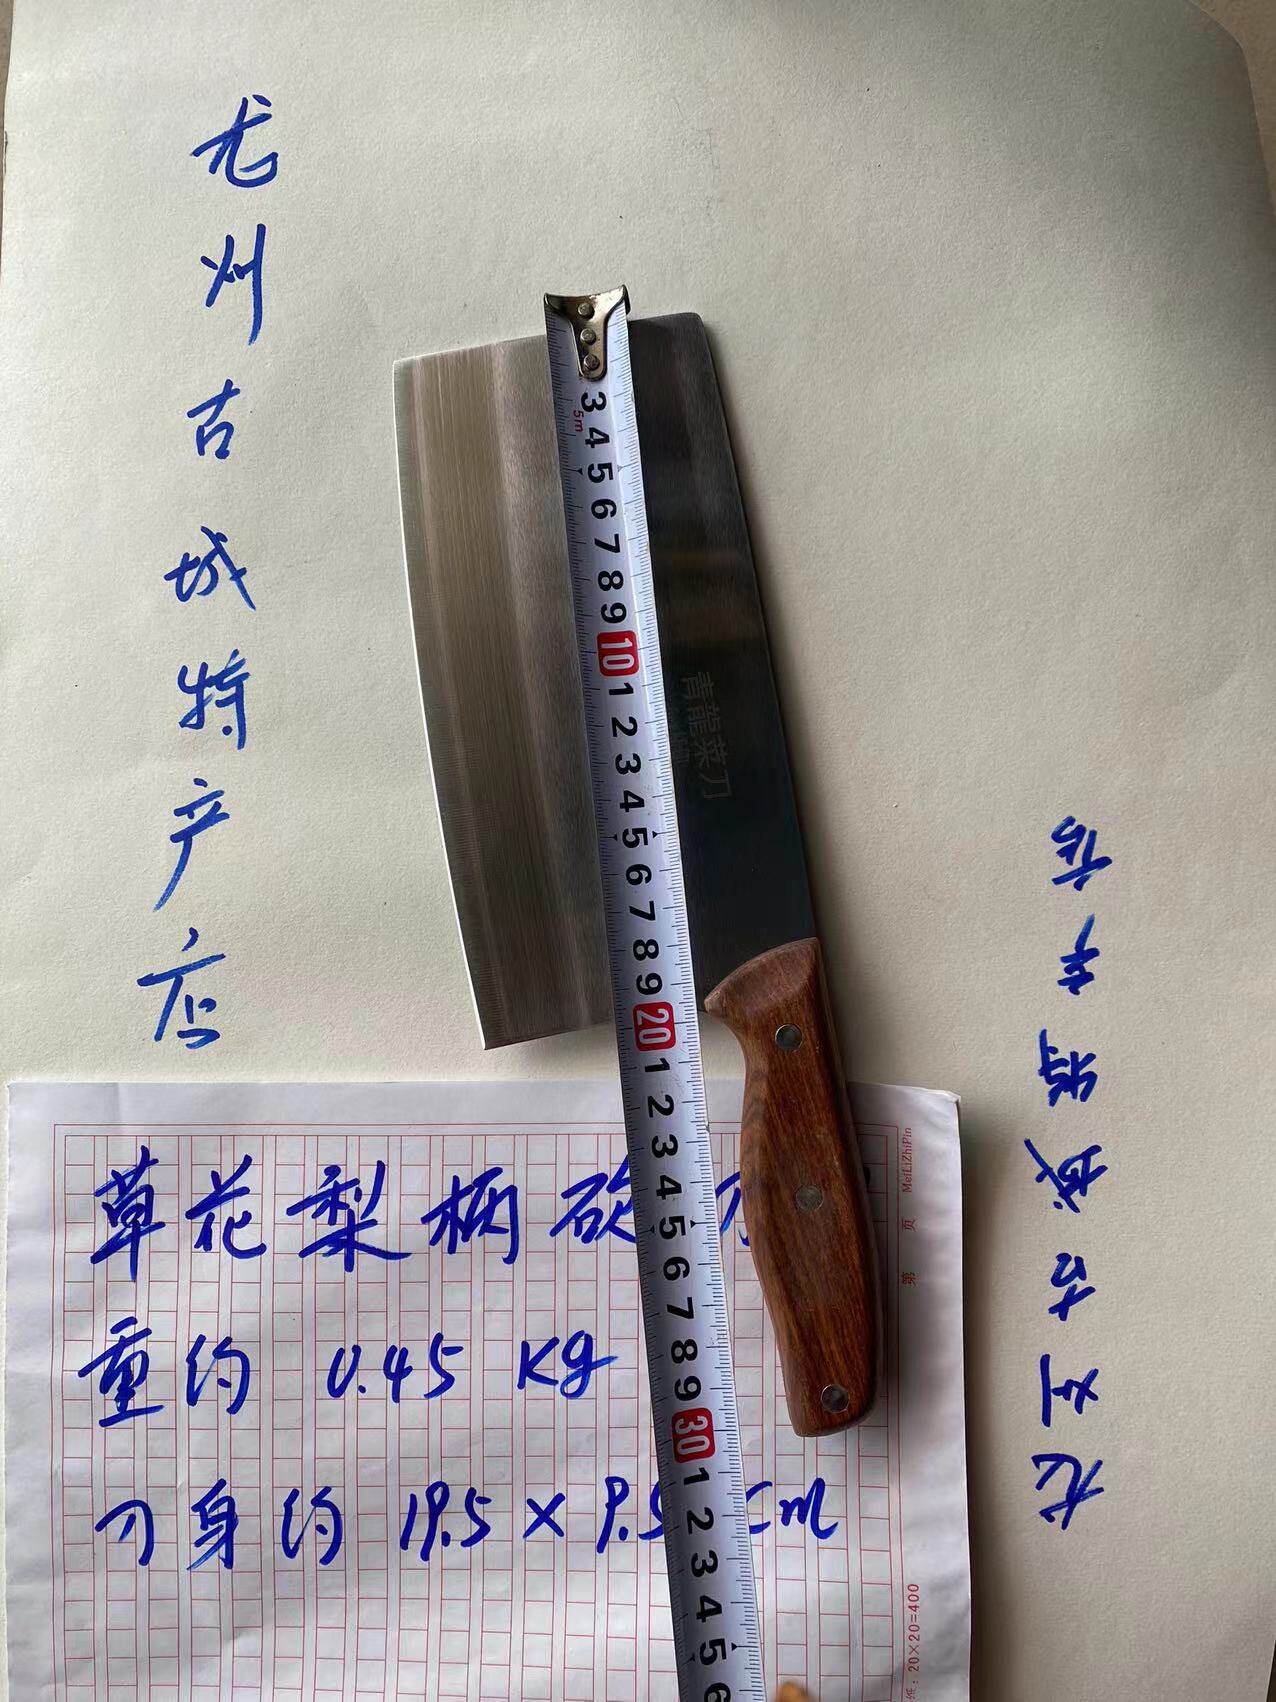 龙州古城特产店
5m
3 4 5 6 7 8 9 10 1 2 3 4 5 6 7 8 9 20 1 2 3 4 5 6 7 8 9 30 1 2 3 4 5 6
青龍菜刀
草花梨柄砍
重约 0.45 Kg
刀身约 19.5 × 9.5 cm
MeiLiZhiPin
第 页
20×20=400